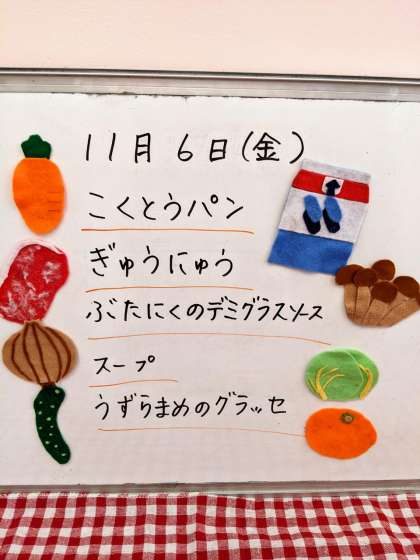 11月 6日(金)
こくとうパン
ぎゅうにゅう
ぶたにくのデミグラスソース
スープ
うずらまめのグラッセ